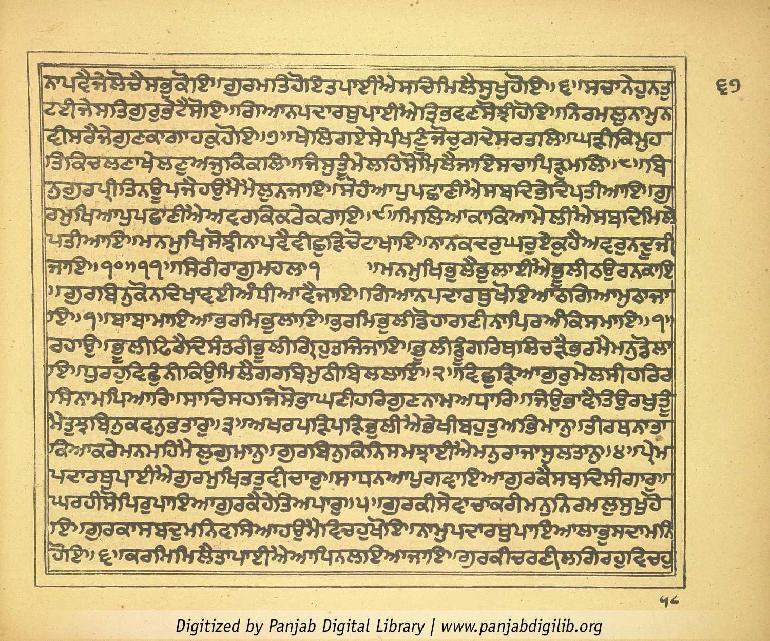 ੬੭
ਨਾਪਵੈਜੇਲੋਚੈਸਭੁਕੋਇ॥ਗੁਰਮਤਿਹੋਇਤਪਾਈਐਸਚਿਮਿਲੈਸੁਖੁਹੋਇ॥੬॥ਸਚਾਨੇਹੁਨਤੁ
ਟਈਜੇਸਤਿਗੁਰੁਭੇਟੈਸੋਇ॥ਗਿਆਨਪਦਾਰਥੁਪਾਈਐਤ੍ਰਿਭਵਣਸੋਝੀਹੋਇ॥ਨਿਰਮਲੁਨਾਮੁਨ
ਵੀਸਰੈਜੇਗੁਣਕਾਗਾਹਕੁਹੋਇ॥੭॥ਖੇਲਿਗਏਸੇਪੰਖਣੂੰਜੋਚੁਗਦੇਸਰਤਲਿ॥ਘੜੀਕਿਮੁਹ
ਤਿਕਿਚਲਣਾਖੇਲਣੁਅਜੁਕਿਕਲਿ॥ਜਿਸੁਤੂੰਮੇਲਹਿਸੋਮਿਲੈਜਾਇਸਚਾਪਿੜੁਮਲਿ॥੮॥ਬਿ
ਨੁਗੁਰਪ੍ਰੀਤਿਨਊਪਜੈਹਉਮੈਮੈਲੁਨਜਾਇ॥ਸੋਹੰਆਪੁਪਛਾਣੀਐਸਬਦਿਭੇਦਿਪਤੀਆਇ॥ਗੁ
ਰਮੁਖਿਆਪੁਪਛਾਣੀਐਅਵਰਕਿਕਰੇਕਰਾਇ॥੯॥ਮਿਲਿਆਕਾਕਿਆਮੇਲੀਐਸਬਦਿਮਿਲੇ
ਪਤੀਆਇ॥ਮਨਮੁਖਿਸੋਝੀਨਾਪਵੈਵੀਛੁੜਿਚੋਟਾਖਾਇ॥ਨਾਨਕਦਰੁਘਰੁਏਕੁਹੈਅਵਰੁਨਦੂਜੀ
ਜਾਇ॥੧੦॥੧੧॥ਸਿਰੀਰਾਗੁਮਹਲਾ੧ ॥ਮਨਮੁਖਿਭੁਲੈਭੁਲਾਈਐਭੂਲੀਠਉਰਨਕਾਇ
॥ਗੁਰਬਿਨੁਕੋਨਦਿਖਾਵਈਅੰਧੀਆਵੈਜਾਇ॥ਗਿਆਨਪਦਾਰਥੁਖੋਇਆਠਗਿਆਮੁਠਾਜਾ
ਇ॥੧॥ਬਾਬਾਮਾਇਆਭਰਮਿਭੁਲਾਇ॥ਭਰਮਿਭੁਲੀਡੋਹਾਗਣੀਨਾਪਿਰਅੰਕਿਸਮਾਇ॥੧॥
ਰਹਾਉ॥ਭੂਲੀਫਿਰੈਦਿਸੰਤਰੀਭੂਲੀਗ੍ਰਿਹੁਤਜਿਜਾਇ॥ਭੂਲੀਡੂੰਗਰਿਥਲਿਚੜੈਭਰਮੈਮਨੁਡੋਲਾ
ਇ॥ਧੁਰਹੁਵਿਛੁੰਨੀਕਿਉਮਿਲੈਗਰਬਿਮੁਠੀਬਿਲਲਾਇ॥੨॥ਵਿਛੁੜਿਆਗੁਰੁਮੇਲਸੀਹਰਿਰ
ਸਿਨਾਮਪਿਆਰਿ॥ਸਾਚਿਸਹਜਿਸੋਭਾਘਣੀਹਰਿਗੁਣਨਾਮਅਧਾਰਿ॥ਜਿਉਭਾਵੈਤਿਉਰਖੁਤੂੰ
ਮੈਤੁਝਬਿਨੁਕਵਨੁਭਤਾਰੁ॥੩॥ਅਖਰਪੜਿਪੜਿਭੁਲੀਐਭੇਖੀਬਹੁਤੁਅਭਿਮਾਨੁ॥ਤੀਰਥਨਾਤਾ
ਕਿਆਕਰੇਮਨਮਹਿਮੈਲੁਗੁਮਾਨੁ॥ਗੁਰਬਿਨੁਕਿਨਿਸਮਝਾਈਐਮਨੁਰਾਜਾਸੁਲਤਾਨੁ॥੪॥ਪ੍ਰੇਮ
ਪਦਾਰਥੁਪਾਈਐਗੁਰਮੁਖਿਤਤੁਵੀਚਾਰੁ॥ਸਾਧਨਆਪੁਗਵਾਇਆਗੁਰਕੈਸਬਦਿਸੀਗਾਰੁ॥
ਘਰਹੀਸੋਪਿਰੁਪਾਇਆਗੁਰਕੈਹੇਤਿਅਪਾਰੁ॥੫॥ਗੁਰਕੀਸੇਵਾਚਾਕਰੀਮਨੁਨਿਰਮਲੁਸੁਖੁਹੋ
ਇ॥ਗੁਰਕਾਸਬਦੁਮਨਿਵਸਿਆਹਉਮੈਵਿਚਹੁਖੋਇ॥ਨਾਮੁਪਦਾਰਥੁਪਾਇਆਲਾਭੁਸਦਾਮਨਿ
ਹੋਇ॥੬॥ਕਰਮਿਮਿਲੈਤਾਪਾਈਐਆਪਿਨਲਇਆਜਾਇ॥ਗੁਰਕੀਚਰਣੀਲਗਿਰਹੁਵਿਚਹੁ
੫੮
Digitized by Panjab Digital Library | www.panjabdigilib.org